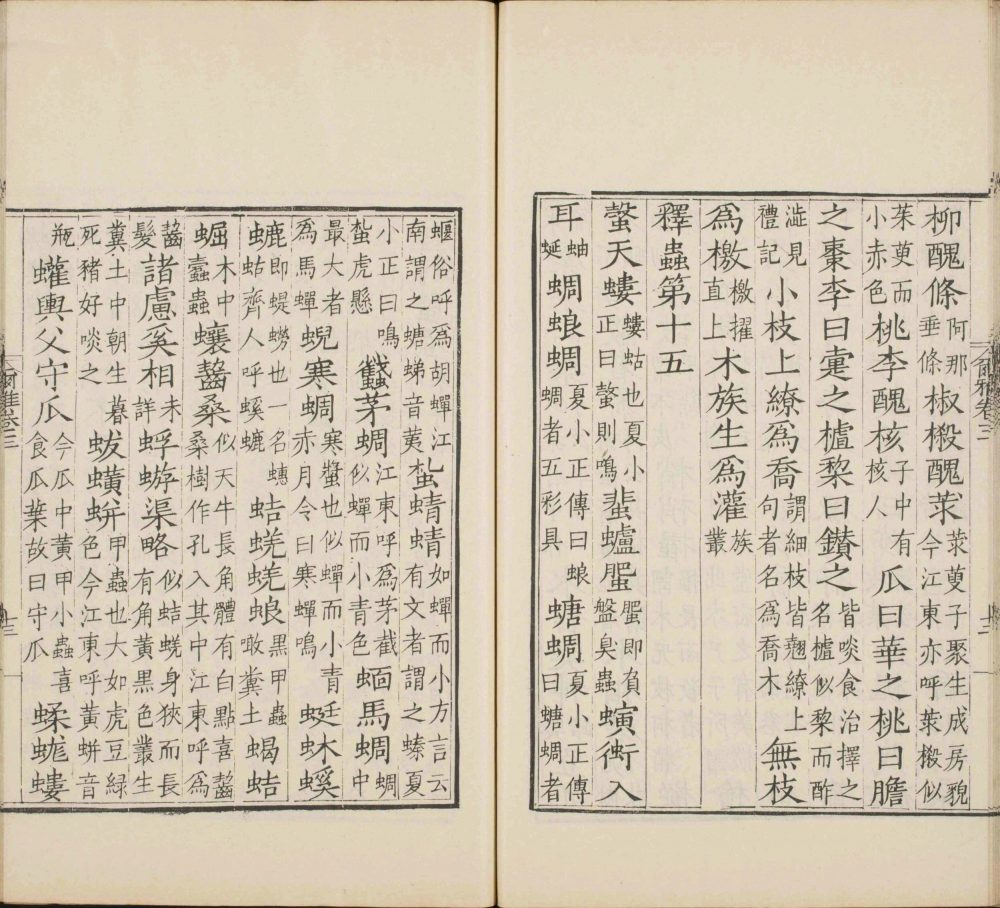 柳醜條阿那垂條椒樧醜莍莍萸子聚生成房貌今江東亦呼莍樧似
茱萸而小赤色桃李醜核子中有核人瓜曰華之桃曰膽
之棗李曰疐之樝棃曰鑽之皆啖食治擇之名樝似棃而酢
澁見禮記小枝上繚爲喬謂細枝皆翹繚上句者名爲喬木無枝
爲檄檄擢直上木族生爲灌族叢
釋蟲第十五
螜天螻螻蛄也夏小正曰螜則鳴蜚蠦蜰蜰即負盤臭蟲螾衏入
耳蚰蜒蜩蜋蜩夏小正傳曰蜋蜩者五彩具螗蜩夏小正傳曰螗蜩者
蝘俗呼爲胡蟬江南謂之螗蛦音荑蚻蜻蜻如蟬而小方言云有文者謂之螓夏
小正曰鳴蚻虎懸蠽茅蜩江東呼爲茅截似蟬而小青色蝒馬蜩蜩中
最大者爲馬蟬蜺寒蜩寒螿也似蟬而小青赤月令曰寒蟬鳴蜓蚞螇
螰即蝭蟧也一名蟪蛄齊人呼螇螰蛣蜣蜣蜋黑甲蟲噉糞土蝎蛣
𧌑木中蠹蟲蠰齧桑似天牛長角體有白點喜齧桑樹作孔入其中江東呼爲
齧髮諸慮奚相未詳蜉蝣渠略似蛣蜣身狹而長有角黄黑色叢生
糞土中朝生暮死豬好啖之蛂蟥蛢甲蟲也大如虎豆緑色今江東呼黄蛢音
瓶蠸輿父守瓜今瓜中黄甲小蟲喜食瓜葉故曰守瓜蝚蛖螻